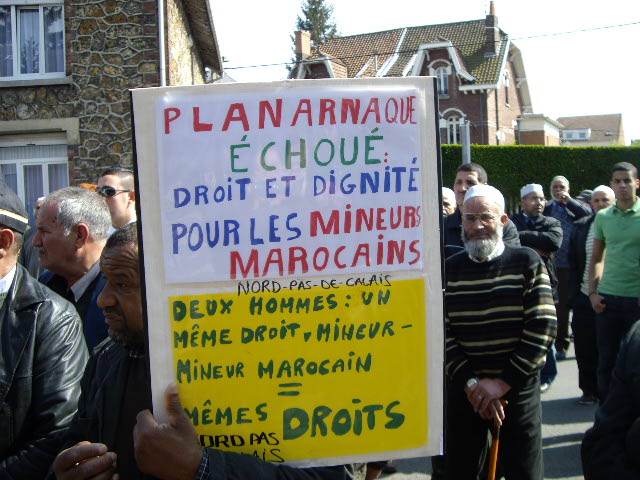 PLAN ARNAQUE
ÉCHOUÉ:
DROIT ET DIGNITÉ
POUR LES MINEURS
MAROCAINS
NORD-PAS-DE-CALAIS
DEUX HOMMES: UN
MÊME DROIT, MINEUR-
MINEUR MAROCAIN
=
MÊMES DROITS
NORD PAS
DE CALAIS